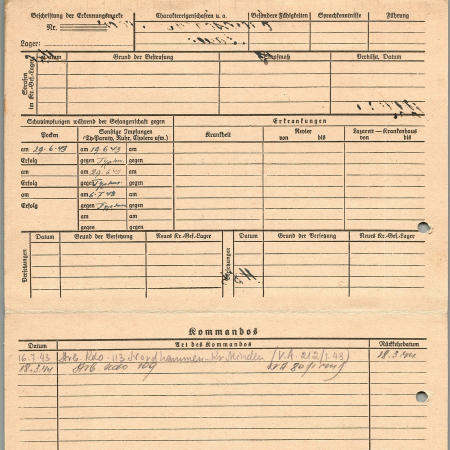 Beschriftung der Erkennungsmarke
Charaktereigenschaften u. a.
Besondere Fähigkeiten
Sprachkenntnisse
Führung
Nr.
Lager:
Strafen im Kr.-Gef.-Lager
Datum
Grund der Bestrafung
Strafmaß
Verbüßt, Datum
Schutzimpfungen während der Gefangenschaft gegen
Erkrankungen
Pocken
Sonstige Impfungen
(Ty.-Paraty., Ruhr, Cholera usw.)
Krankheit
Revier
von bis
Lazarett — Krankenhaus
von bis
am 29.6.43 am 19.6.43 am
Erfolg gegen Typhus gegen
am am 29.6.43 am
Erfolg gegen Typhus gegen
am am 6.7.43 am
Erfolg gegen Typhus gegen
am am
gegen gegen
Versetzungen
Datum
Grund der Versetzung
Neues Kr.-Gef.-Lager
Versetzungen
Datum
Grund der Versetzung
Neues Kr.-Gef.-Lager
Kommandos
Datum
Art des Kommandos
Rückkehrdatum
16.7.43 Arb. Kdo-113 Nordhemmern-Kr. Minden (V.A. 212/7.43) 18.3.44
18.3.44 Arb Kdo 109